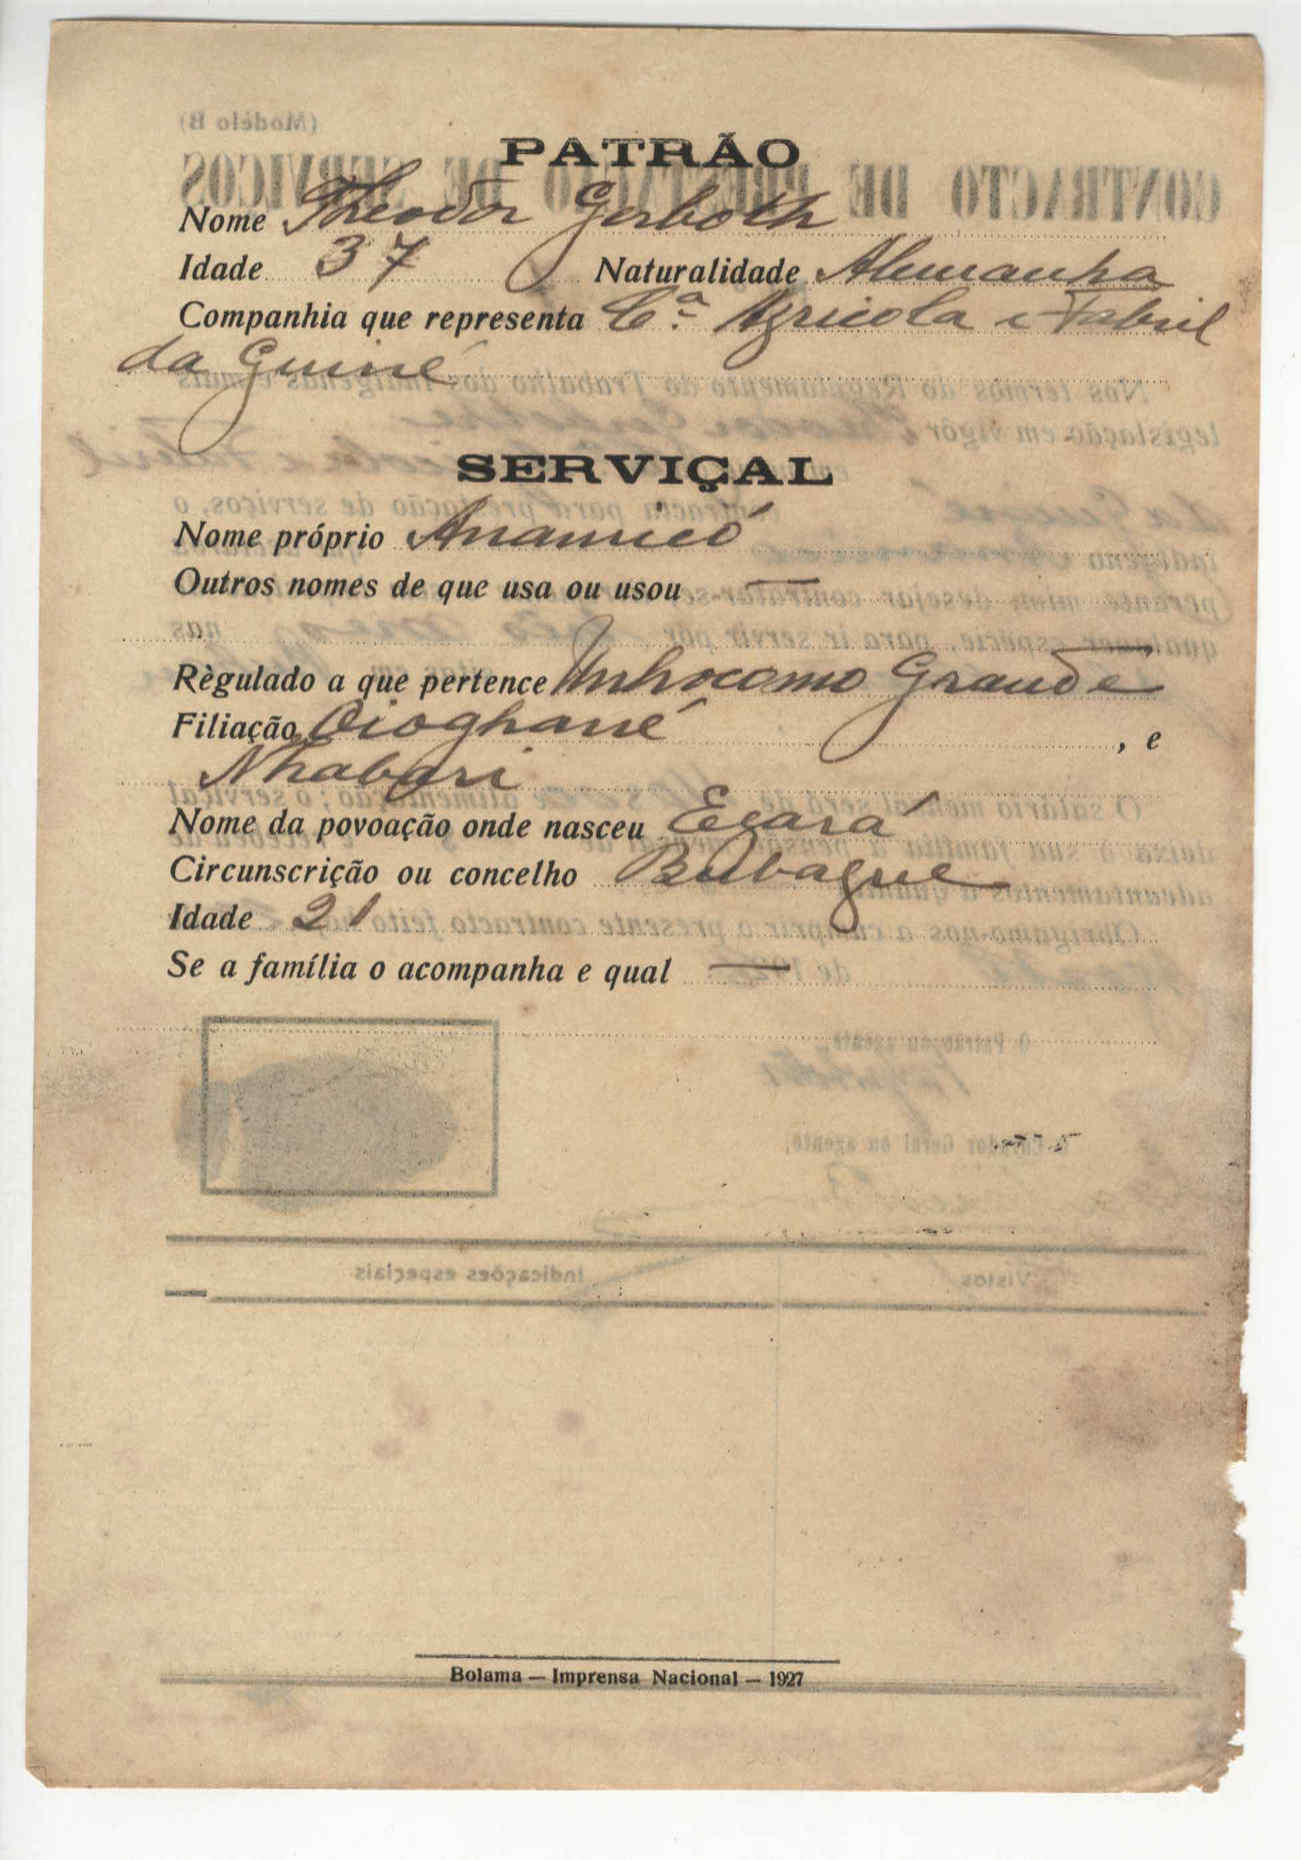 PATRÃO
Nome Theodor Gerboth
Idade 37 Naturalidade Alemanha
Companhia que representa Cª Agricola e Fabril
da Guiné
SERVIÇAL
Nome próprio
Outros nomes de que usa ou usou —
Règulado a que pertence Grande
Filiação , e
Nhabari
Nome da povoação onde nasceu Ecará
Circunscrição ou concelho Bubaque
Idade 21
Se a família o acompanha e qual —
Bolama — Imprensa Nacional — 1927